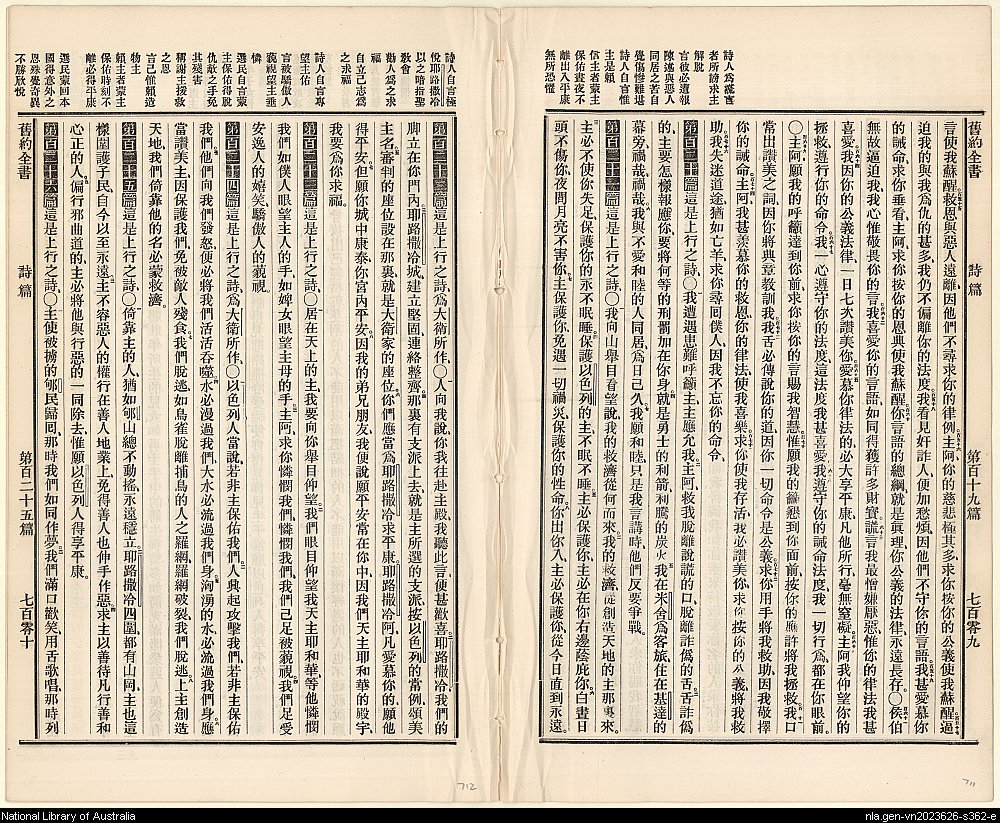 舊約全書 詩篇 第百十九篇 七百零九
詩人爲謊言
者所謗求主
解脫
言彼必遭報
陳述與惡人
同居之苦自
覺傷慘難堪
詩人自言惟
主是賴
信主者蒙主
保佑晝夜不
離出入平康
無所恐懼
言使我蘇醒、救恩與惡人遠離、因他們不尋求你的律例、主阿、你的慈悲極其多、求你按你的公義使我蘇醒、逼
迫我的與我爲仇的甚多、我仍不偏離你的法度、我看見奸詐人、便加愁煩、因他們不守你的言語、我甚愛慕你
的誡命、求你垂看、主阿、求你按你的恩典使我蘇醒、你言語的總綱就是眞理、你公義的法律、永遠長存、〇侯伯
無故逼迫我、我心惟敬畏你的言、我喜愛你的言語、如同得獲許多財寶、謊言我最憎嫌厭惡、惟你的律法我甚
喜愛、我因你的公義法律、一日七次讚美你、愛慕你律法的必大享平康、凡他所行、毫無窒礙、主阿、我仰望你的
拯救、遵行你的命令、我一心遵守你的法度、這法度我甚喜愛、我遵守你的誡命法度、我一切行爲、都在你眼前、
〇主阿、願我的呼籲達到你前、求你按你的言賜我智慧、惟願我的籲懇到你面前、按你的應許將我拯救、我口
常出讚美之詞、因你將典章教訓我、我舌必傳說你的道、因你一切命令是公義、求你用手將我救助、因我敬擇
你的誡命、主阿、我甚羨慕你的救恩、你的律法、使我喜樂、求你使我存活、我必讚美你、求你按你的公義、將我救
助、我失迷道途、猶如亡羊、求你尋回僕人、因我不忘你的命令、
第百二十篇 這是上行之詩、〇我遭遇患難、呼籲主、主應允我、主阿、救我脫離說謊的口、脫離詐僞的舌、舌詐僞
的、主要怎樣報應你、要將何等的刑罰加在你身、就是勇士的利箭、利騰的炭火、我在米舍爲客旅、住在基達的
幕旁、禍哉禍哉、我與不愛和睦的人同居、爲日已久、我願和睦、只是我言講時、他們反要爭戰、
第百二十一篇 這是上行之詩、〇我向山舉目看望、說我的救濟從何而來、我的救濟、從創造天地的主那裏來、
主必不使你失足、保護你的永不眠睡、保護以色列的主、不眠不睡、主必保護你、主必在你右邊蔭庇你、白晝日
頭不傷你、夜間月亮不害你、主保護你、免遇一切禍災、保護你的性命、你出你入、主必保護你、從今日直到永遠、
舊約全書 詩篇 第百二十五篇 七百零十
詩人自言極
悅耶路撒冷
以之暗指聖
教會
勸人爲之求
福
自立己志爲
之求福
詩人自言專
望主佑
言被驕傲人
藐視望主垂
憐
選民自言蒙
主保佑得脫
仇敵之手免
其殘害
稱謝主援救
之恩
言己惟賴造
物主
賴主者蒙主
保佑時刻不
離必得平康
選民蒙回本
國得意外之
恩殊覺奇異
不勝欣悅
第百二十二篇 這是上行之詩、爲大衛所作、〇人向我說、你我往赴主殿、我聽此言便甚歡喜、耶路撒冷、我們的
脚立在你門內、耶路撒冷城、建立堅固、連絡整齊、那裏有支派上去、就是主所選的支派、按以色列的常例頌美
主名、審判的座位設在那裏、就是大衛家的座位、你們應當爲耶路撒冷求平康、耶路撒冷阿、凡愛慕你的、願他
得平安、但願你城中康泰、你宮內平安、因我的弟兄朋友、我便說願平安常在你中、因我們天主耶和華的殿宇、
我要爲你求福、
第百二十三篇 這是上行之詩、〇居在天上的主、我要向你舉目仰望、我們眼目仰望我天主耶和華、等他憐憫
我們、如僕人眼望主人的手、如婢女眼望主母的手、主阿、求你憐憫我們、憐憫我們、我們已足被藐視、我們足受
安逸人的嬉笑、驕傲人的藐視、
第百二十四篇 這是上行之詩、爲大衛所作、〇以色列人當說、若非主保佑我們、人興起攻擊我們、若非主保佑
我們、他們向我們發怒、便必將我們活活吞噬、水必漫過我們、大水必流過我們身、洶湧的水、必流過我們身、應
當讚美主、因保護我們、免被敵人殘食、我們脫逃、如鳥雀脫離捕鳥的人之羅網、羅網破裂、我們脫逃、上主創造
天地、我們倚靠他的名、必蒙救濟、
第百二十五篇 這是上行之詩、〇倚靠主的人、猶如郇山、總不動搖、永遠穩立、耶路撒冷四圍都有山岡、主也這
樣圍護子民、自今以至永遠、主不容惡人的權行在善人地業上、免得善人也伸手作惡、求主以善待凡行善和
心正的人、偏行邪曲道的、主必將他與行惡的一同除去、惟願以色列人得享平康、
第百二十六篇 這是上行之詩、〇主使被擄的郇民歸回、那時我們如同作夢、我們滿口歡笑、用舌歌唱、那時列
712
711
National Library of Australia
nla.gen-vn2023626-s362-e